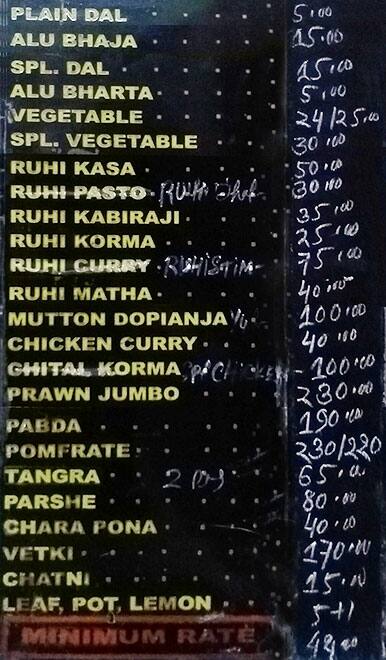 PLAIN DAL 5.00
ALU BHAJA 15.00
SPL. DAL 15.00
ALU BHARTA 5.00
VEGETABLE 24/25.00
SPL. VEGETABLE 30.00
RUHI KASA 50.00
RUHI PASTO RUHI 30.00
RUHI KABIRAJI 35.00
RUHI KORMA 25.00
RUHI CURRY RUHI STIM 75.00
RUHI MATHA 40.00
MUTTON DOPIANJA 100.00
CHICKEN CURRY 40.00
CHITAL KORMA SP. CHICKEN - 100.00
PRAWN JUMBO 230.00
PABDA 190.00
POMFRATE 230/220
TANGRA 2 PCS 65.00
PARSHE 80.00
CHARA PONA 40.00
VETKI 170.00
CHATNI 15.00
LEAF, POT, LEMON 5+1
MINIMUM RATE